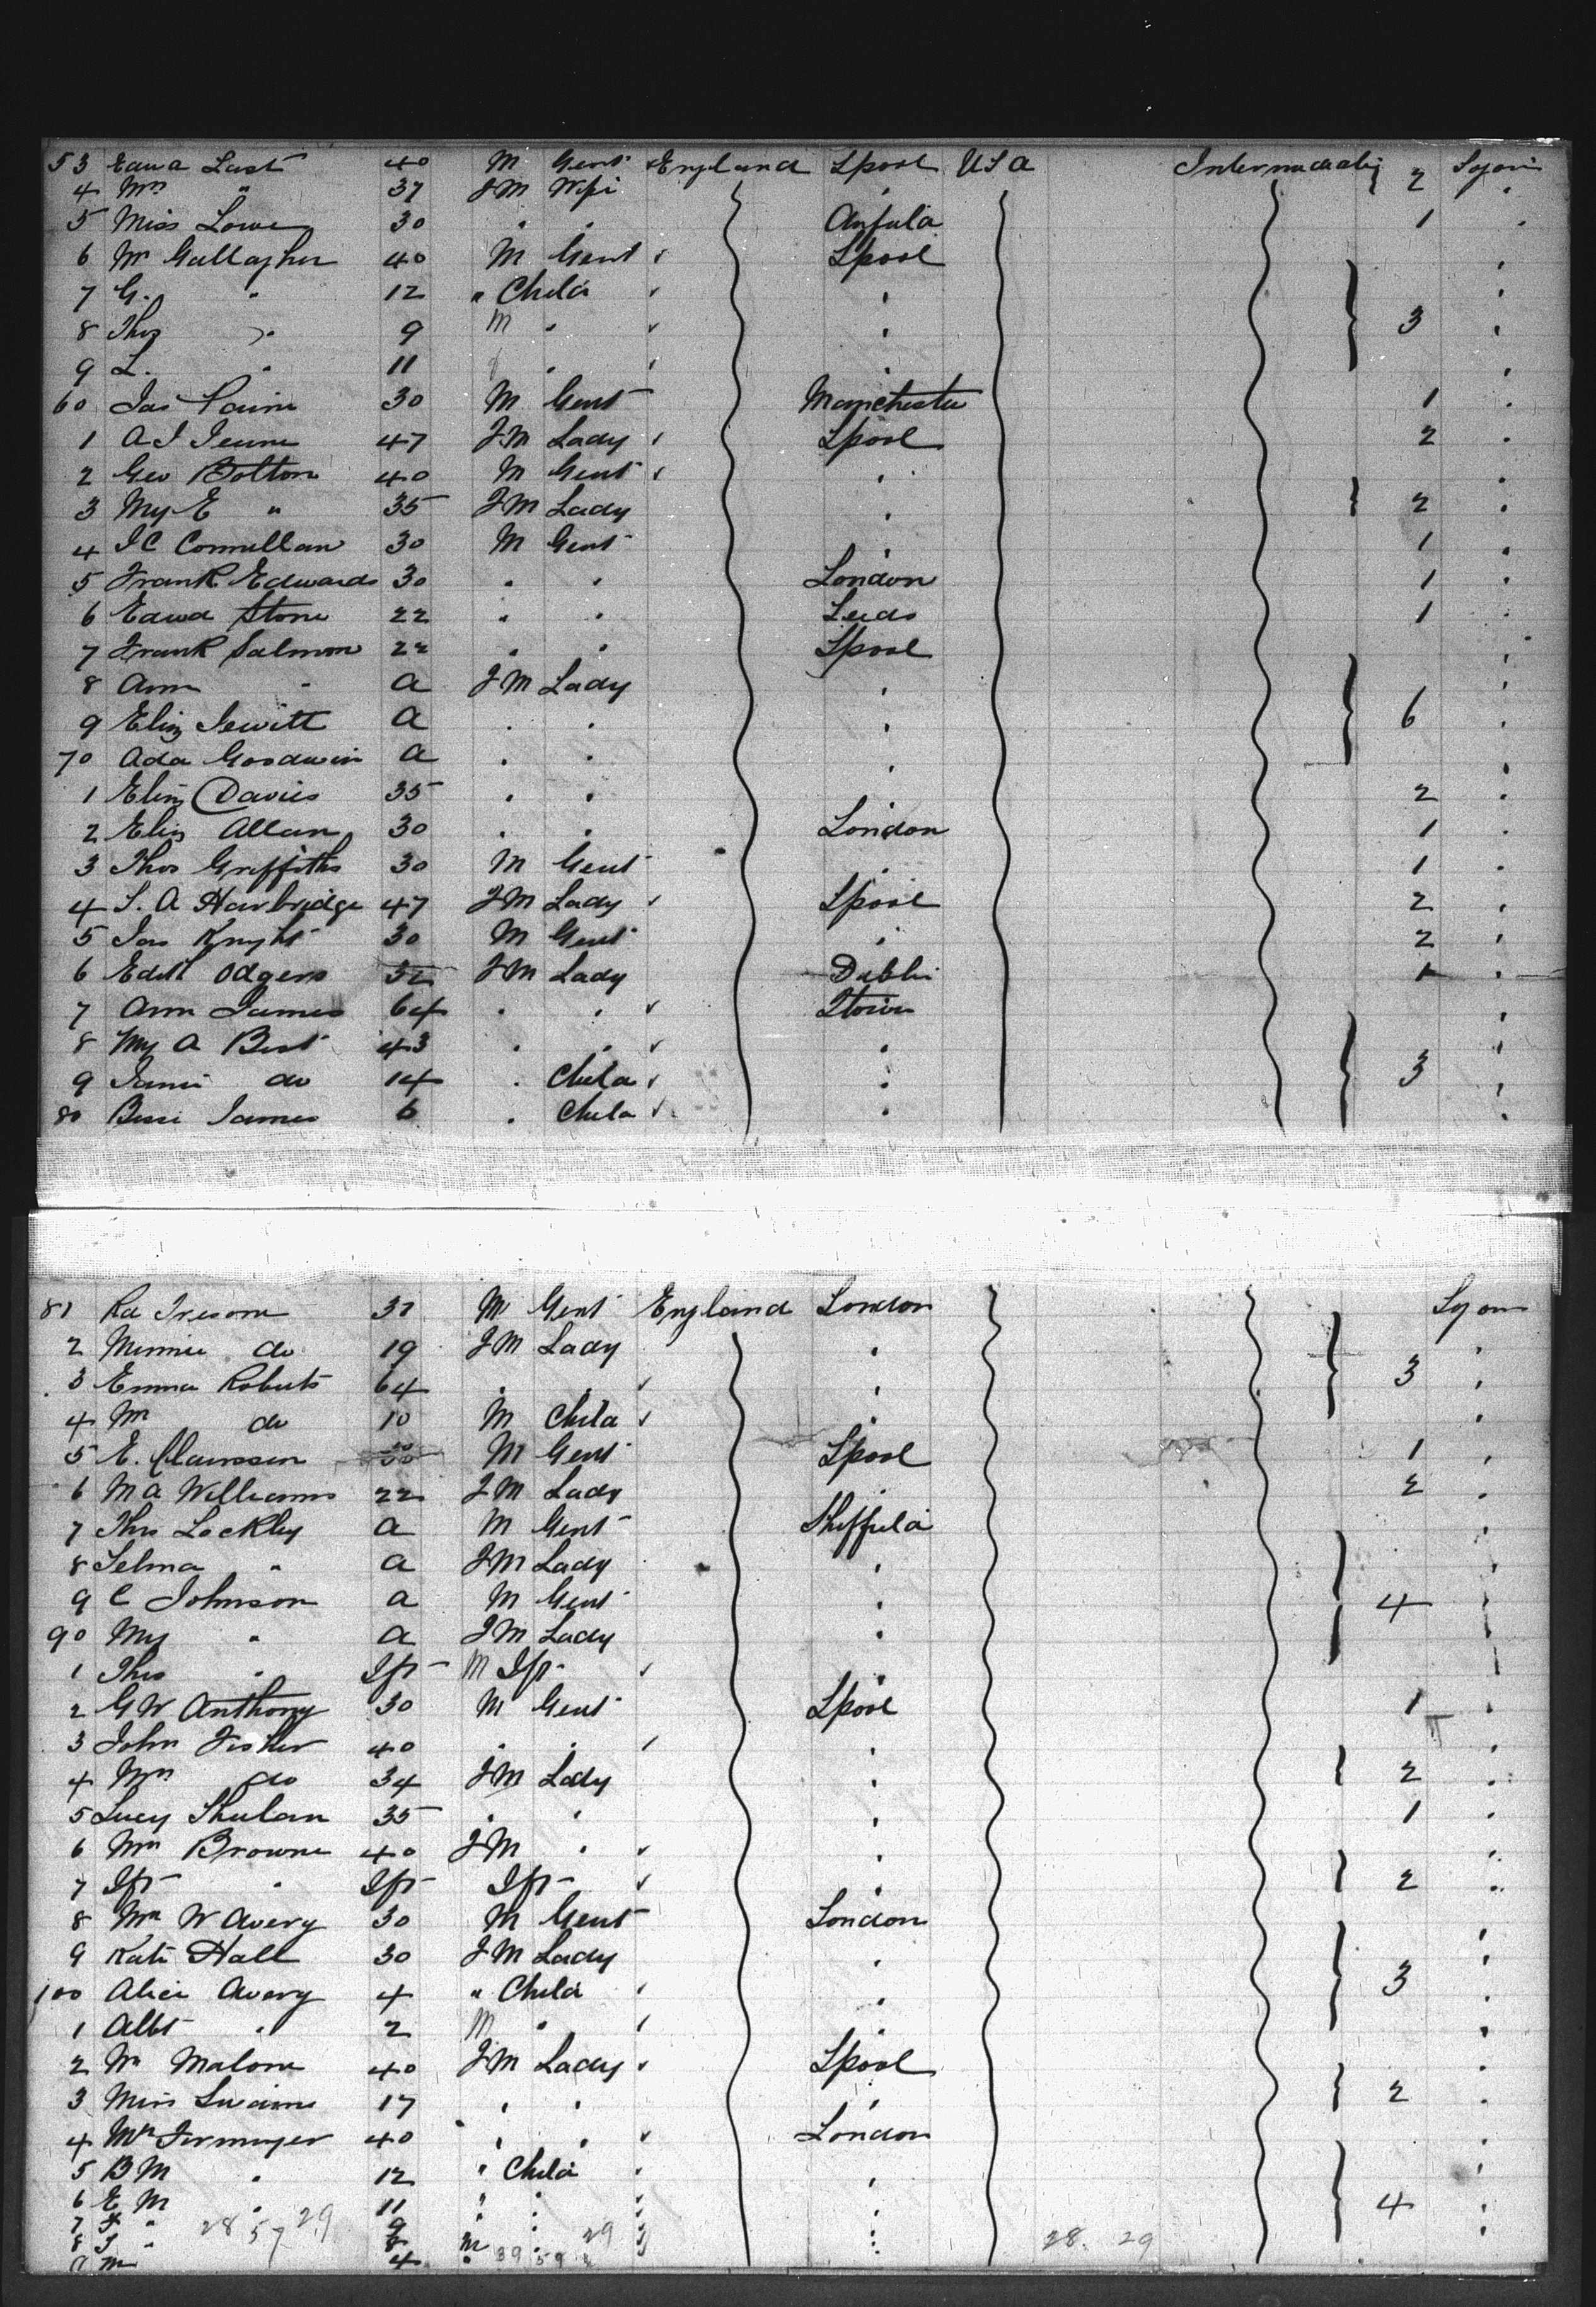 53 Edwd Last 40 M Gent England Lpool USA Intermediate 2 Sojourn
4 Mrs " 37 FM Wife
5 Miss Lowe 30 " " 1
6 Mr Gallagher 40 M Gent Lpool
7 G. " 12 " Child "
8 Thos " 9 M " " 3
9 L. " 11 f " "
60 Jas 30 M Gent Manchester 1
1 A J 47 FM Lady Lpool 2
2 Geo Bolton 40 M Gent "
3 My E " 35 FM Lady " 2
4 J C Connellan 30 M Gent " 1
5 Frank Edwards 30 " " London 1
6 Edwd Stone 22 " " Leeds 1
7 Frank Salmon 22 " " Lpool
8 Ann " A FM Lady "
9 Eliz Jewitt A " " " 6
70 Ada Goodwin A " " "
1 Eliz Davies 35 " " " 2
2 Eliz Allan 30 " " London 1
3 Thos Griffiths 30 M Gent " 1
4 S. A Harbridge 47 FM Lady Lpool 2
5 Jas Knight 30 M Gent " 2
6 Edith Odgers 32 FM Lady Dublin 1
7 Ann James 64 " " Qtown
8 My A Best 43 " " "
9 do 14 " Child " 3
80 Bessie James 6 " Child "
81 Rd 37 M Gent England London Sojourn
2 Minnie do 19 FM Lady "
3 Emma Roberts 64 " " " 3
4 Wm do 10 M Child "
5 E. M Gent Lpool 1
6 M A Williams 22 FM Lady " 2
7 Thos Lockley A M Gent Sheffield
8 Selma " A FM Lady "
9 C Johnson A M Gent " 4
90 My " A FM Lady "
1 Thos " Ift M Ift "
2 G W Anthony 30 M Gent Lpool 1
3 John Fisher 40 " " "
4 Mrs do 34 FM Lady " 2
5 Lucy 35 " " " 1
6 Mrs Browne 40 FM " "
7 Ift " Ift Ift " 2
8 W Avery 30 M Gent London
9 Kate Hall 30 FM Lady "
100 Alice Avery 4 " Child " 3
1 Albt " 2 M " "
2 Malone 40 FM Lady Lpool
3 Miss 17 " " " 2
4 Mrs 40 " " London
5 B M " 12 " Child "
6 E M " 11 " " " 4
7 F " 9 " " "
8 J " M " "
9 M 4 "
28 57 29 29 39 59 28. 29